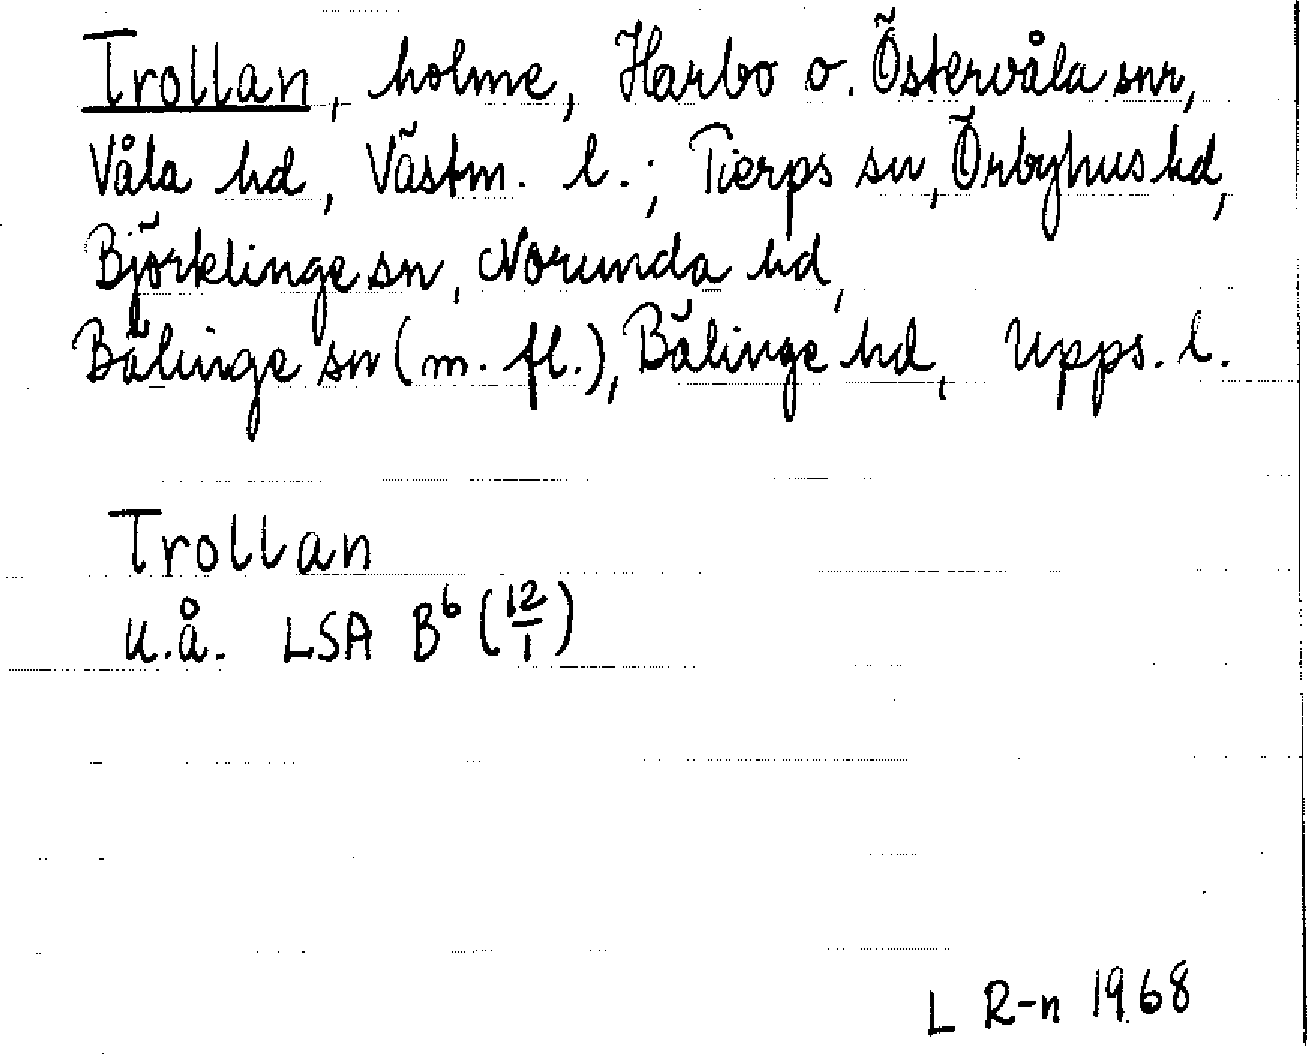 Trollan, holme, Harbo o. Östervåla snr,
Våla hd, Västm. l.; Tierps sn, Örbyhus hd,
Björklinge sn, Norunda hd,
Bälinge sn (m. fl.), Bälinge hd, Upps. l.
Trollan
u.å. LSA B⁶ (12/1)
L R-n 1968